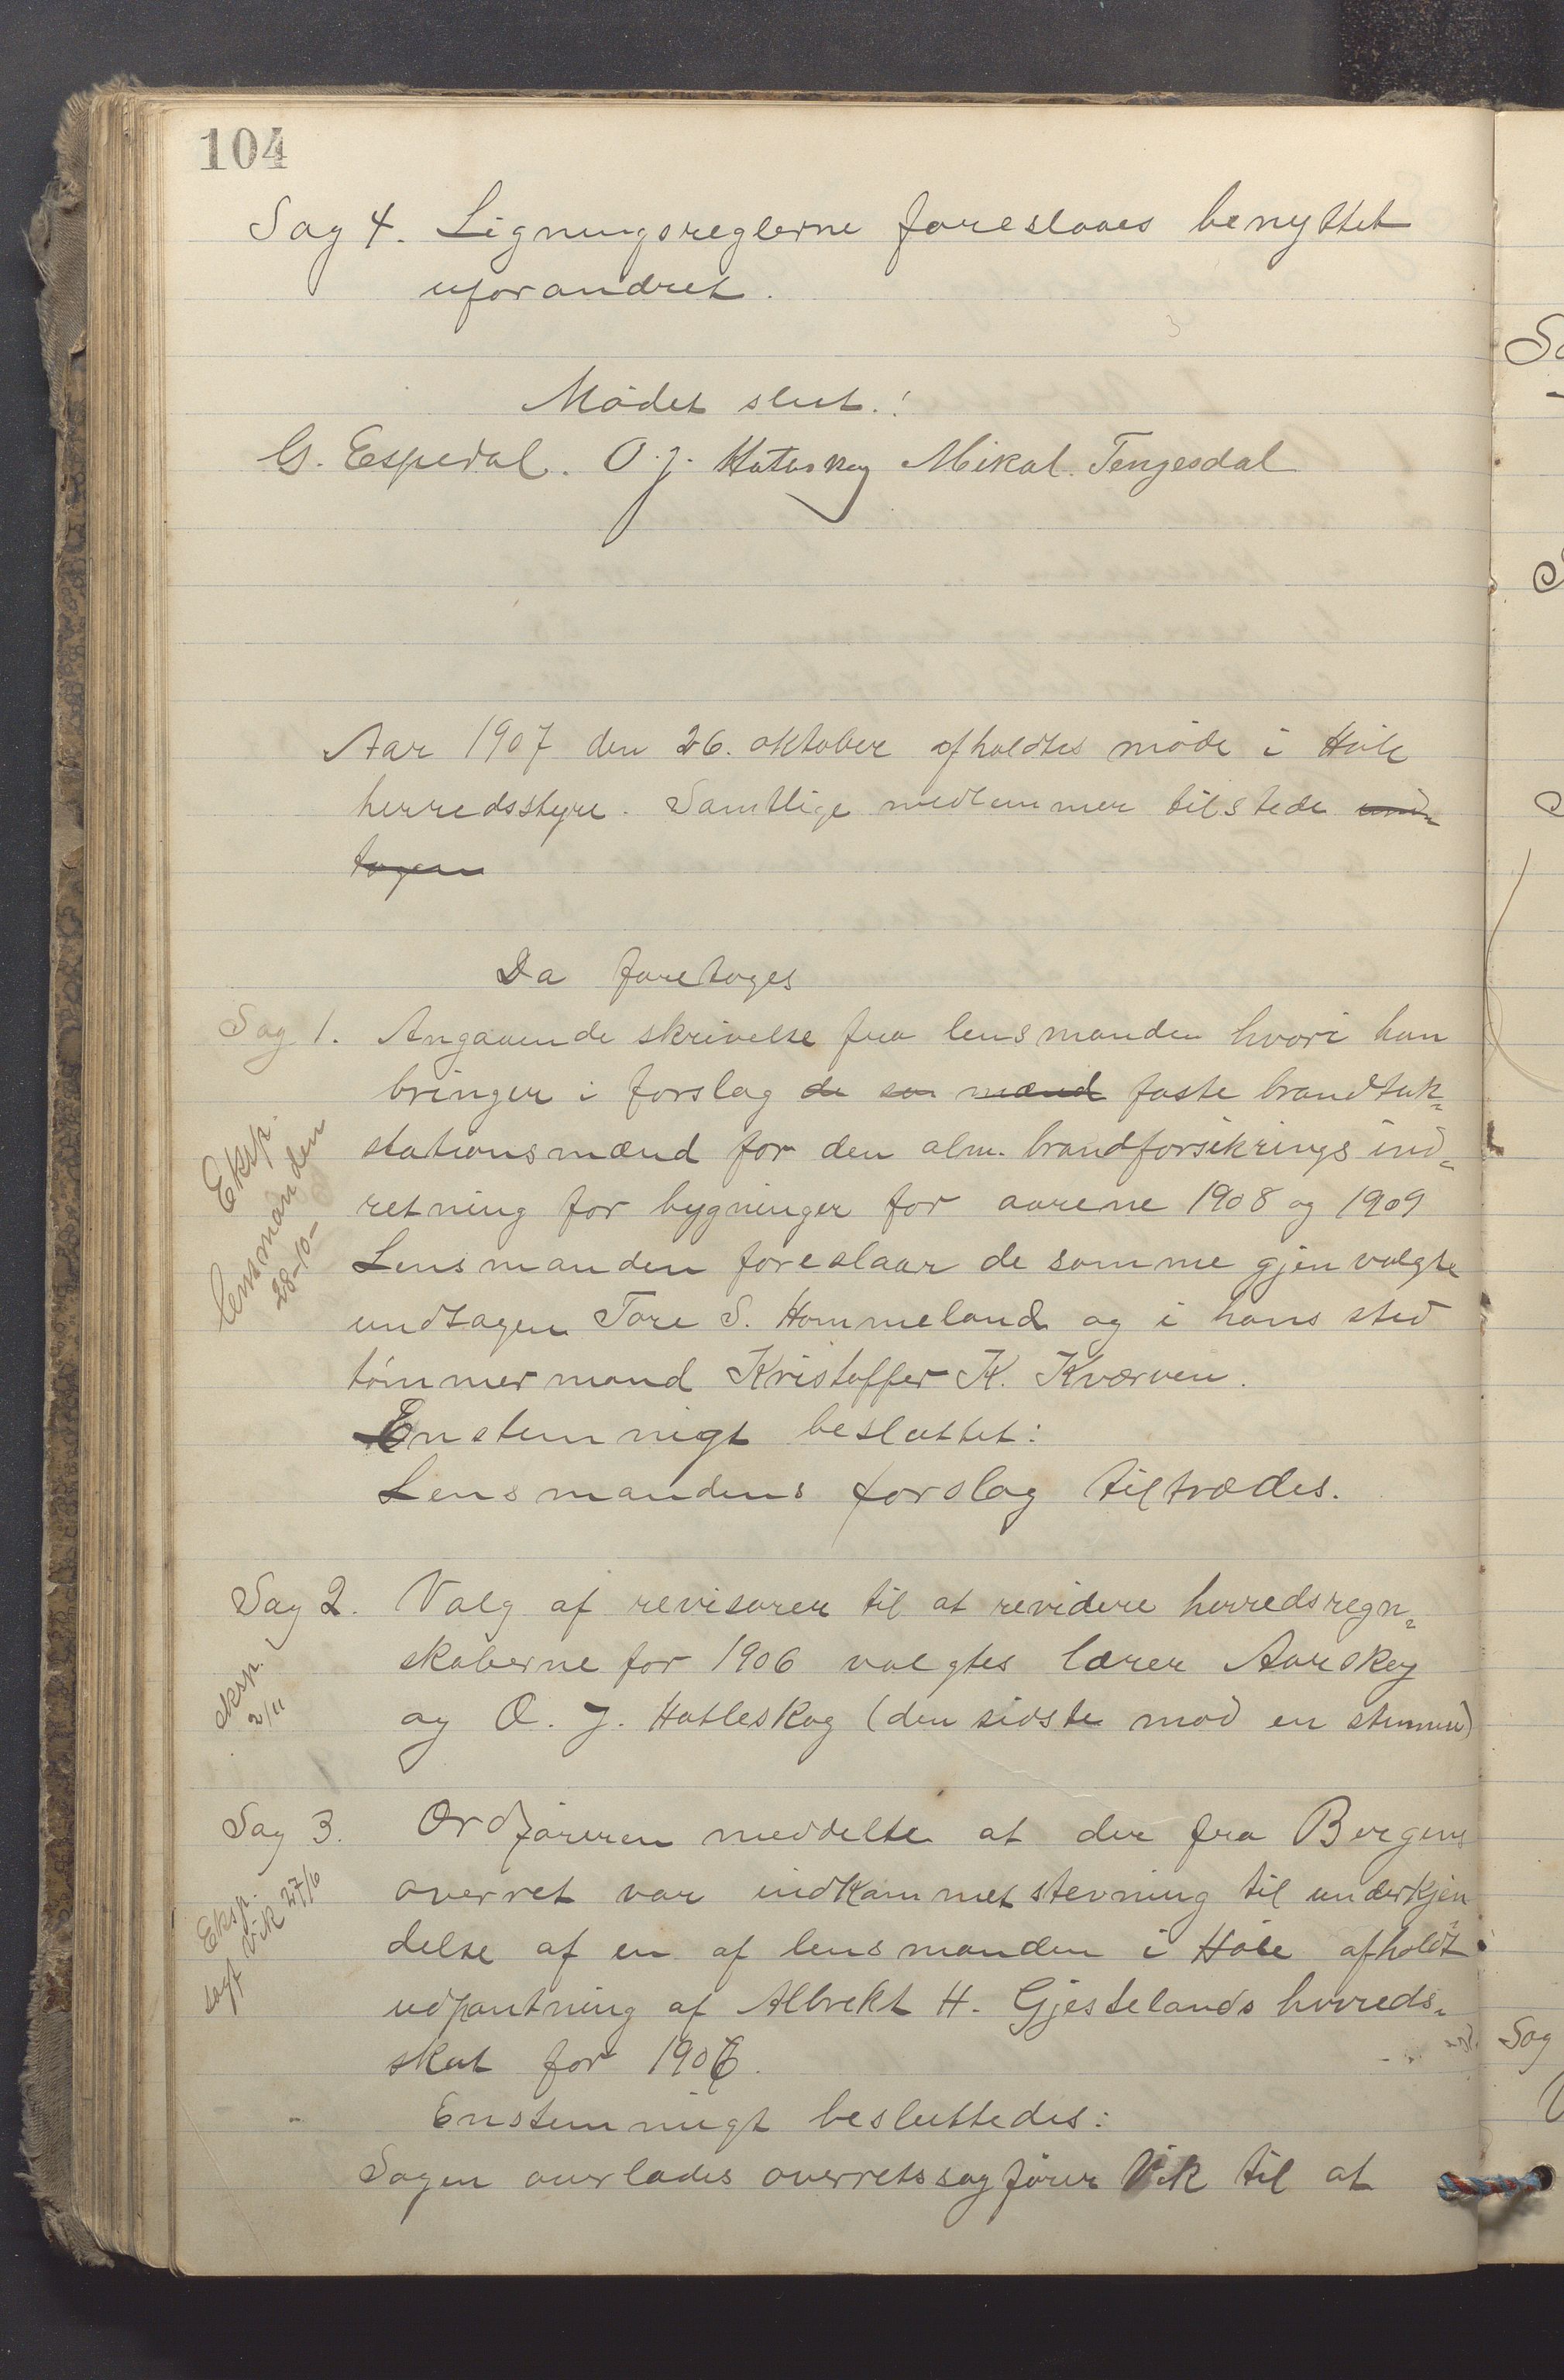 104
Sag 4. Ligningsreglerne foreslaaes benyttet
uforandret.
Mødet slut.!
G. Espedal. O. J. Hatleskog Mikal Tengesdal
Aar 1907 den 26. oktober afholdtes møde i Høle
herredsstyre. Samtlige medlemmer tilstede und-
tagen
Da foretoges
Sag 1. Angaaende skrivelse fra lensmanden hvori han
bringer i forslag de som mænd faste brandtak-
stationsmænd for den alm. brandforsikrings ind-
retning for bygninger for aarene 1908 og 1909
Lensmanden foreslaar de samme gjenvalgte
undtagen Tore S. Hommeland og i hans sted
tømmermand Kristoffer K. Kværven.
Enstemmigt besluttet:
Lensmandens forslag tiltrædes.
Eksp.
lensmanden
28-10-
Sag 2. Valg af revisorer til at revidere herredsregn-
skaberne for 1906 valgtes lærer Aarskog
og O. J. Hatleskog (den sidste mod en stemme)
eksp.
2/11
Sag 3. Ordføreren meddelte at der fra Bergens
overret var indkommet stevning til underkjen-
delse af en af lensmanden i Høle afholdt
udpantning af Albrekt H. Gjestelands herreds-
skat for 1906.
Enstemmigt besluttedes:
Sagen overlades overretssagfører Vik til at
Eksp.
sagf Vik 27/10
Sag